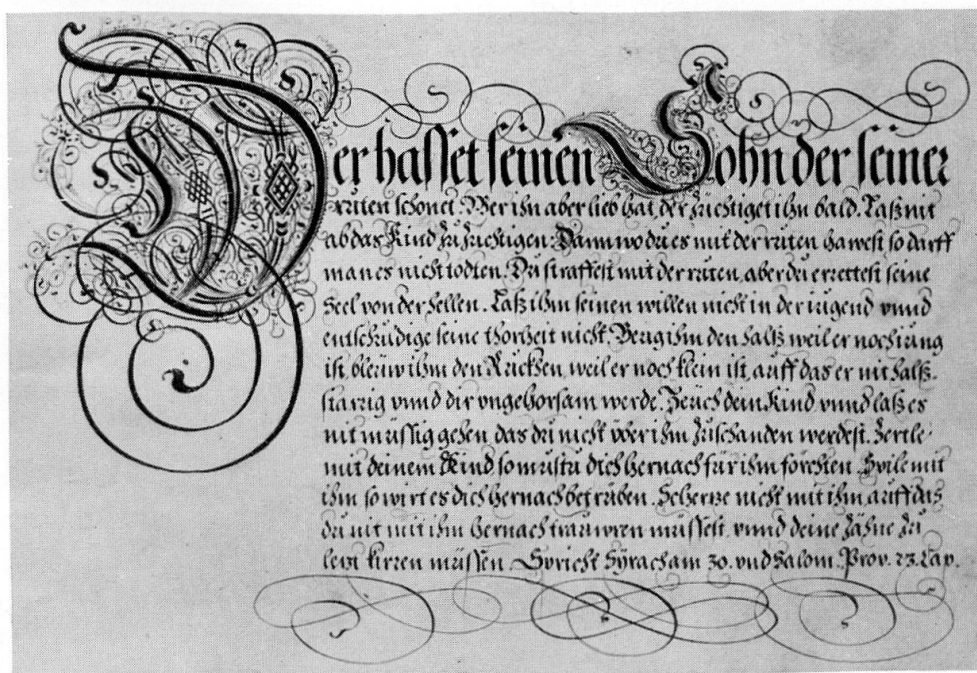 Der hasset seinen Sohn der seiner
rruten schonet. Wer ihn aber lieb hat, der züchtiget ihn bald. Laß nit
ab das Kind zu züchtigen: Dann wo du es mit der ruten hawest so darff
man es nicht tödten. Du straffest mit der ruten, aber du errettest seine
Seel von der Hellen. Laß ihm seinen willen nicht in der iugend vnnd
entschuldige seine thorheit nicht. Beug ihm den halß weil er noch iung
ist, bleüw ihm den Rucken, weil er noch klein ist, auff das er nit halß-
starig vnnd dir vngehorsam werde. Zeuch dein Kind vnnd laß es
nit müssig gehen, das du nicht vber ihm zuschanden werdest. Zertle
mit deinem Kind so mustu dich hernach für ihm förchten. Spile mit
ihm so wirt es dich hernach betrüben. Scherze nicht mit ihm auff das
du nit mit ihm hernach trauwren müssest, vnnd deine Zähne zu
letzt kirren müssen. Spricht Syrach am 30. vnd Salom. Prov. 23. Cap.